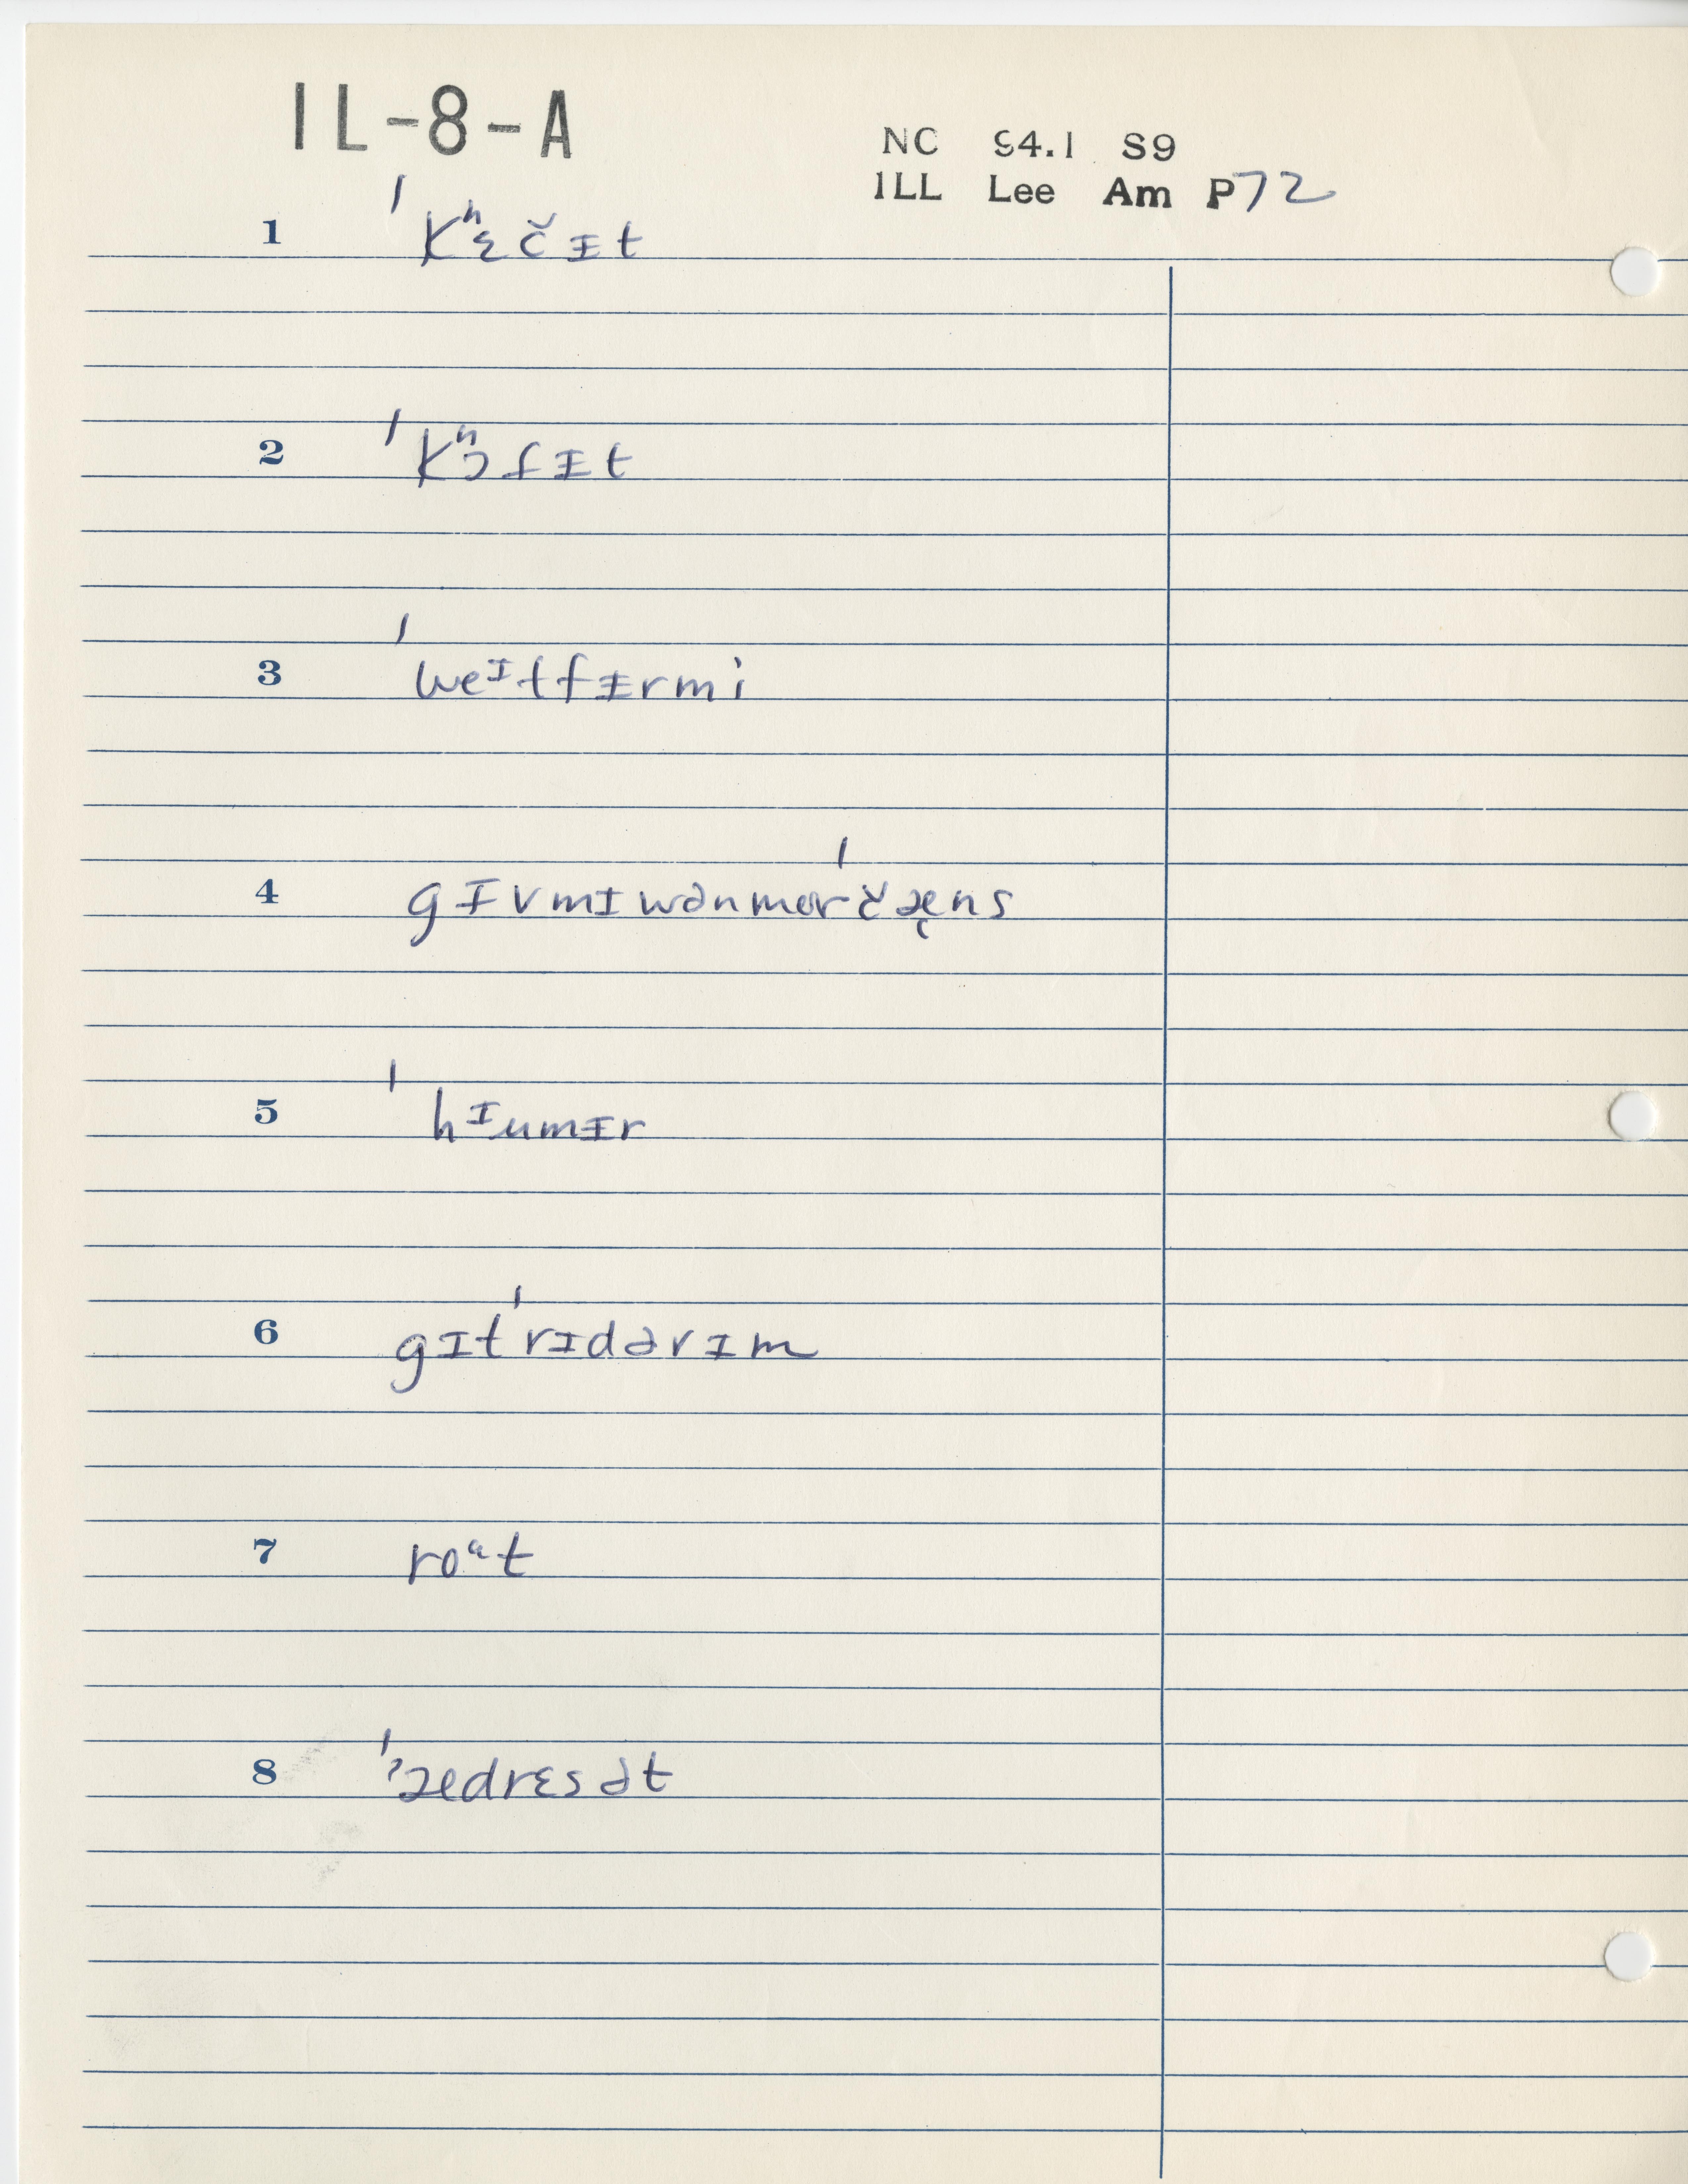 IL-8-A
NC S4.1 S9
ILL Lee Am P72
1 ˈkʰɛčɪt
2 ˈkʰɔfɪt
3 ˈweᶦtfɨrmi
4 gɪvmɪwənmorˈčæ̨ns
5 ˈhᶦumɨr
6 gɪtˈrɪdərɪm
7 roᵘt
8 ˈʔædrɛsət